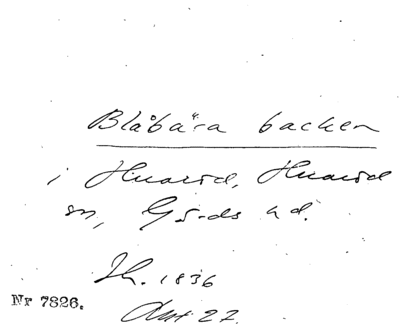 Blåbära backen
i Huaröd, Huaröd
sn, Gärds hd.
Sk. 1836
Akt 27.
Nr 7826.